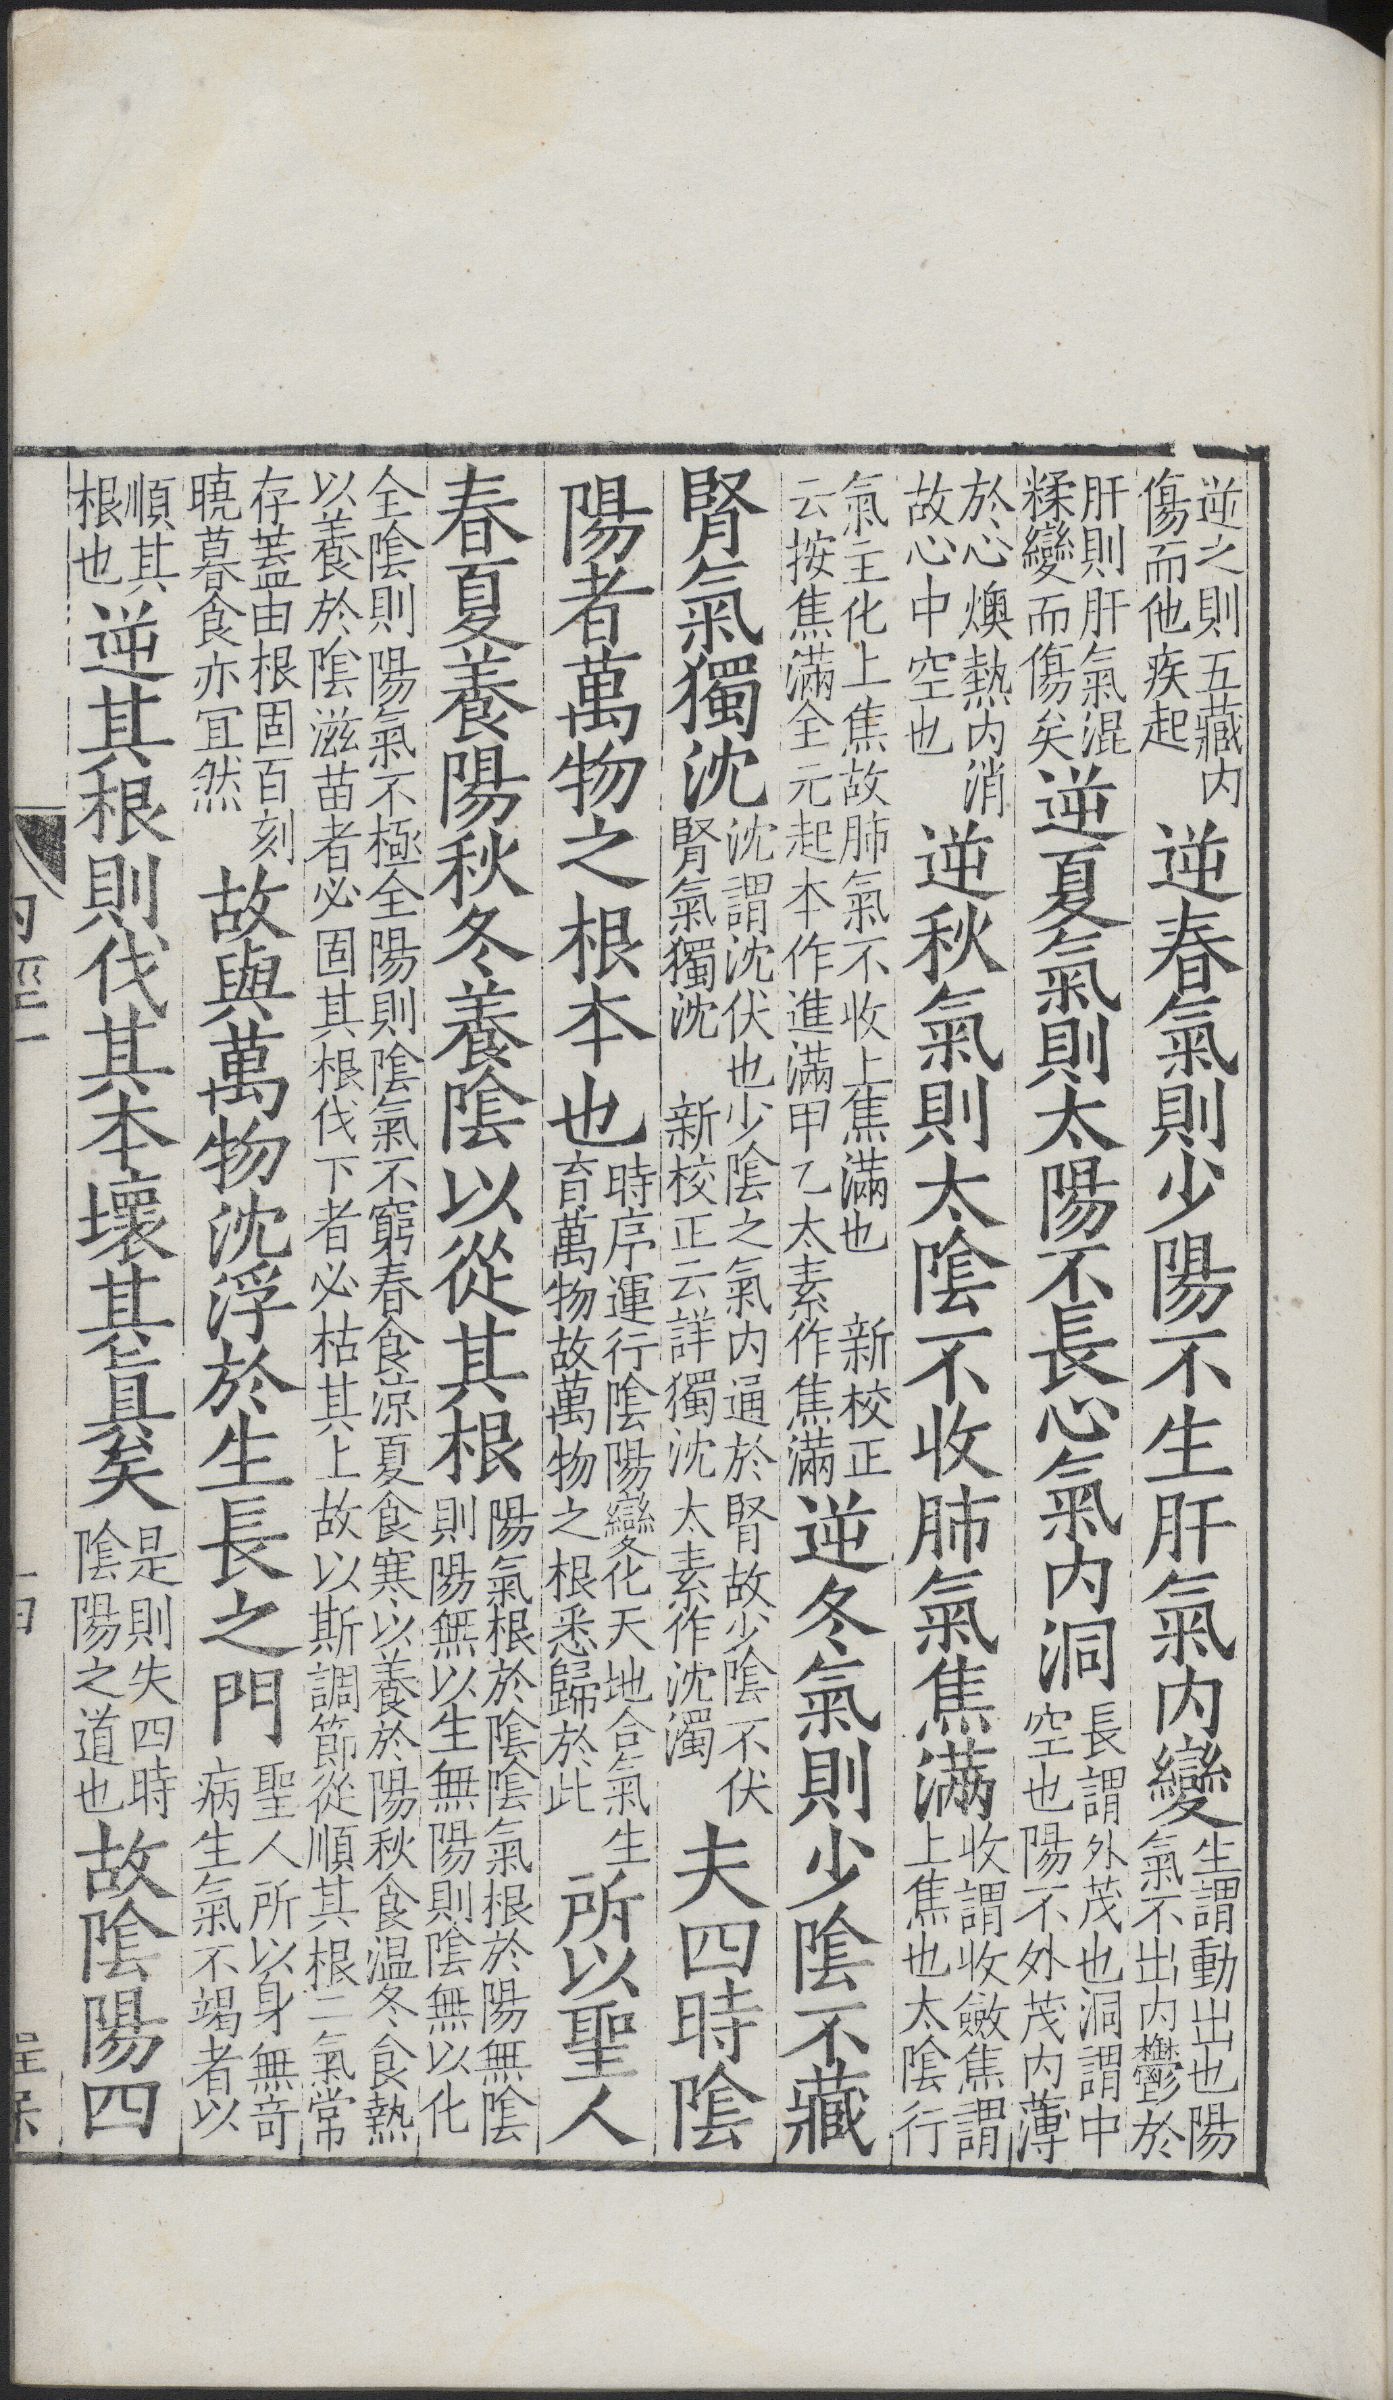 逆之則五藏内傷而他疾起逆春氣則少陽不生肝氣内變生謂動出也陽氣不出内鬱於
肝則肝氣混糅變而傷矣逆夏氣則太陽不長心氣内洞長謂外茂也洞謂中空也陽不外茂内薄
於心燠熱内消故心中空也逆秋氣則太陰不收肺氣焦滿收謂收斂焦謂上焦也太陰行
氣主化上焦故肺氣不收上焦滿也 新校正云按焦滿全元起本作進滿甲乙太素作焦滿逆冬氣則少陰不藏
腎氣獨沈沈謂沈伏也少陰之氣内通於腎故少陰不伏腎氣獨沈 新校正云詳獨沈太素作沈濁夫四時陰
陽者萬物之根本也時序運行陰陽變化天地合氣生育萬物故萬物之根悉歸於此所以聖人
春夏養陽秋冬養陰以從其根陽氣根於陰陰氣根於陽無陰則陽無以生無陽則陰無以化
全陰則陽氣不極全陽則陰氣不窮春食涼夏食寒以養於陽秋食温冬食熱以養於陰滋苗者必固其根伐下者必枯其上故以斯調節從順其根二氣常
存蓋由根固百刻曉暮食亦宜然故與萬物沈浮於生長之門聖人所以身無竒病生氣不竭者以
順其根也逆其根則伐其本壞其眞矣是則失四時陰陽之道也故陰陽四